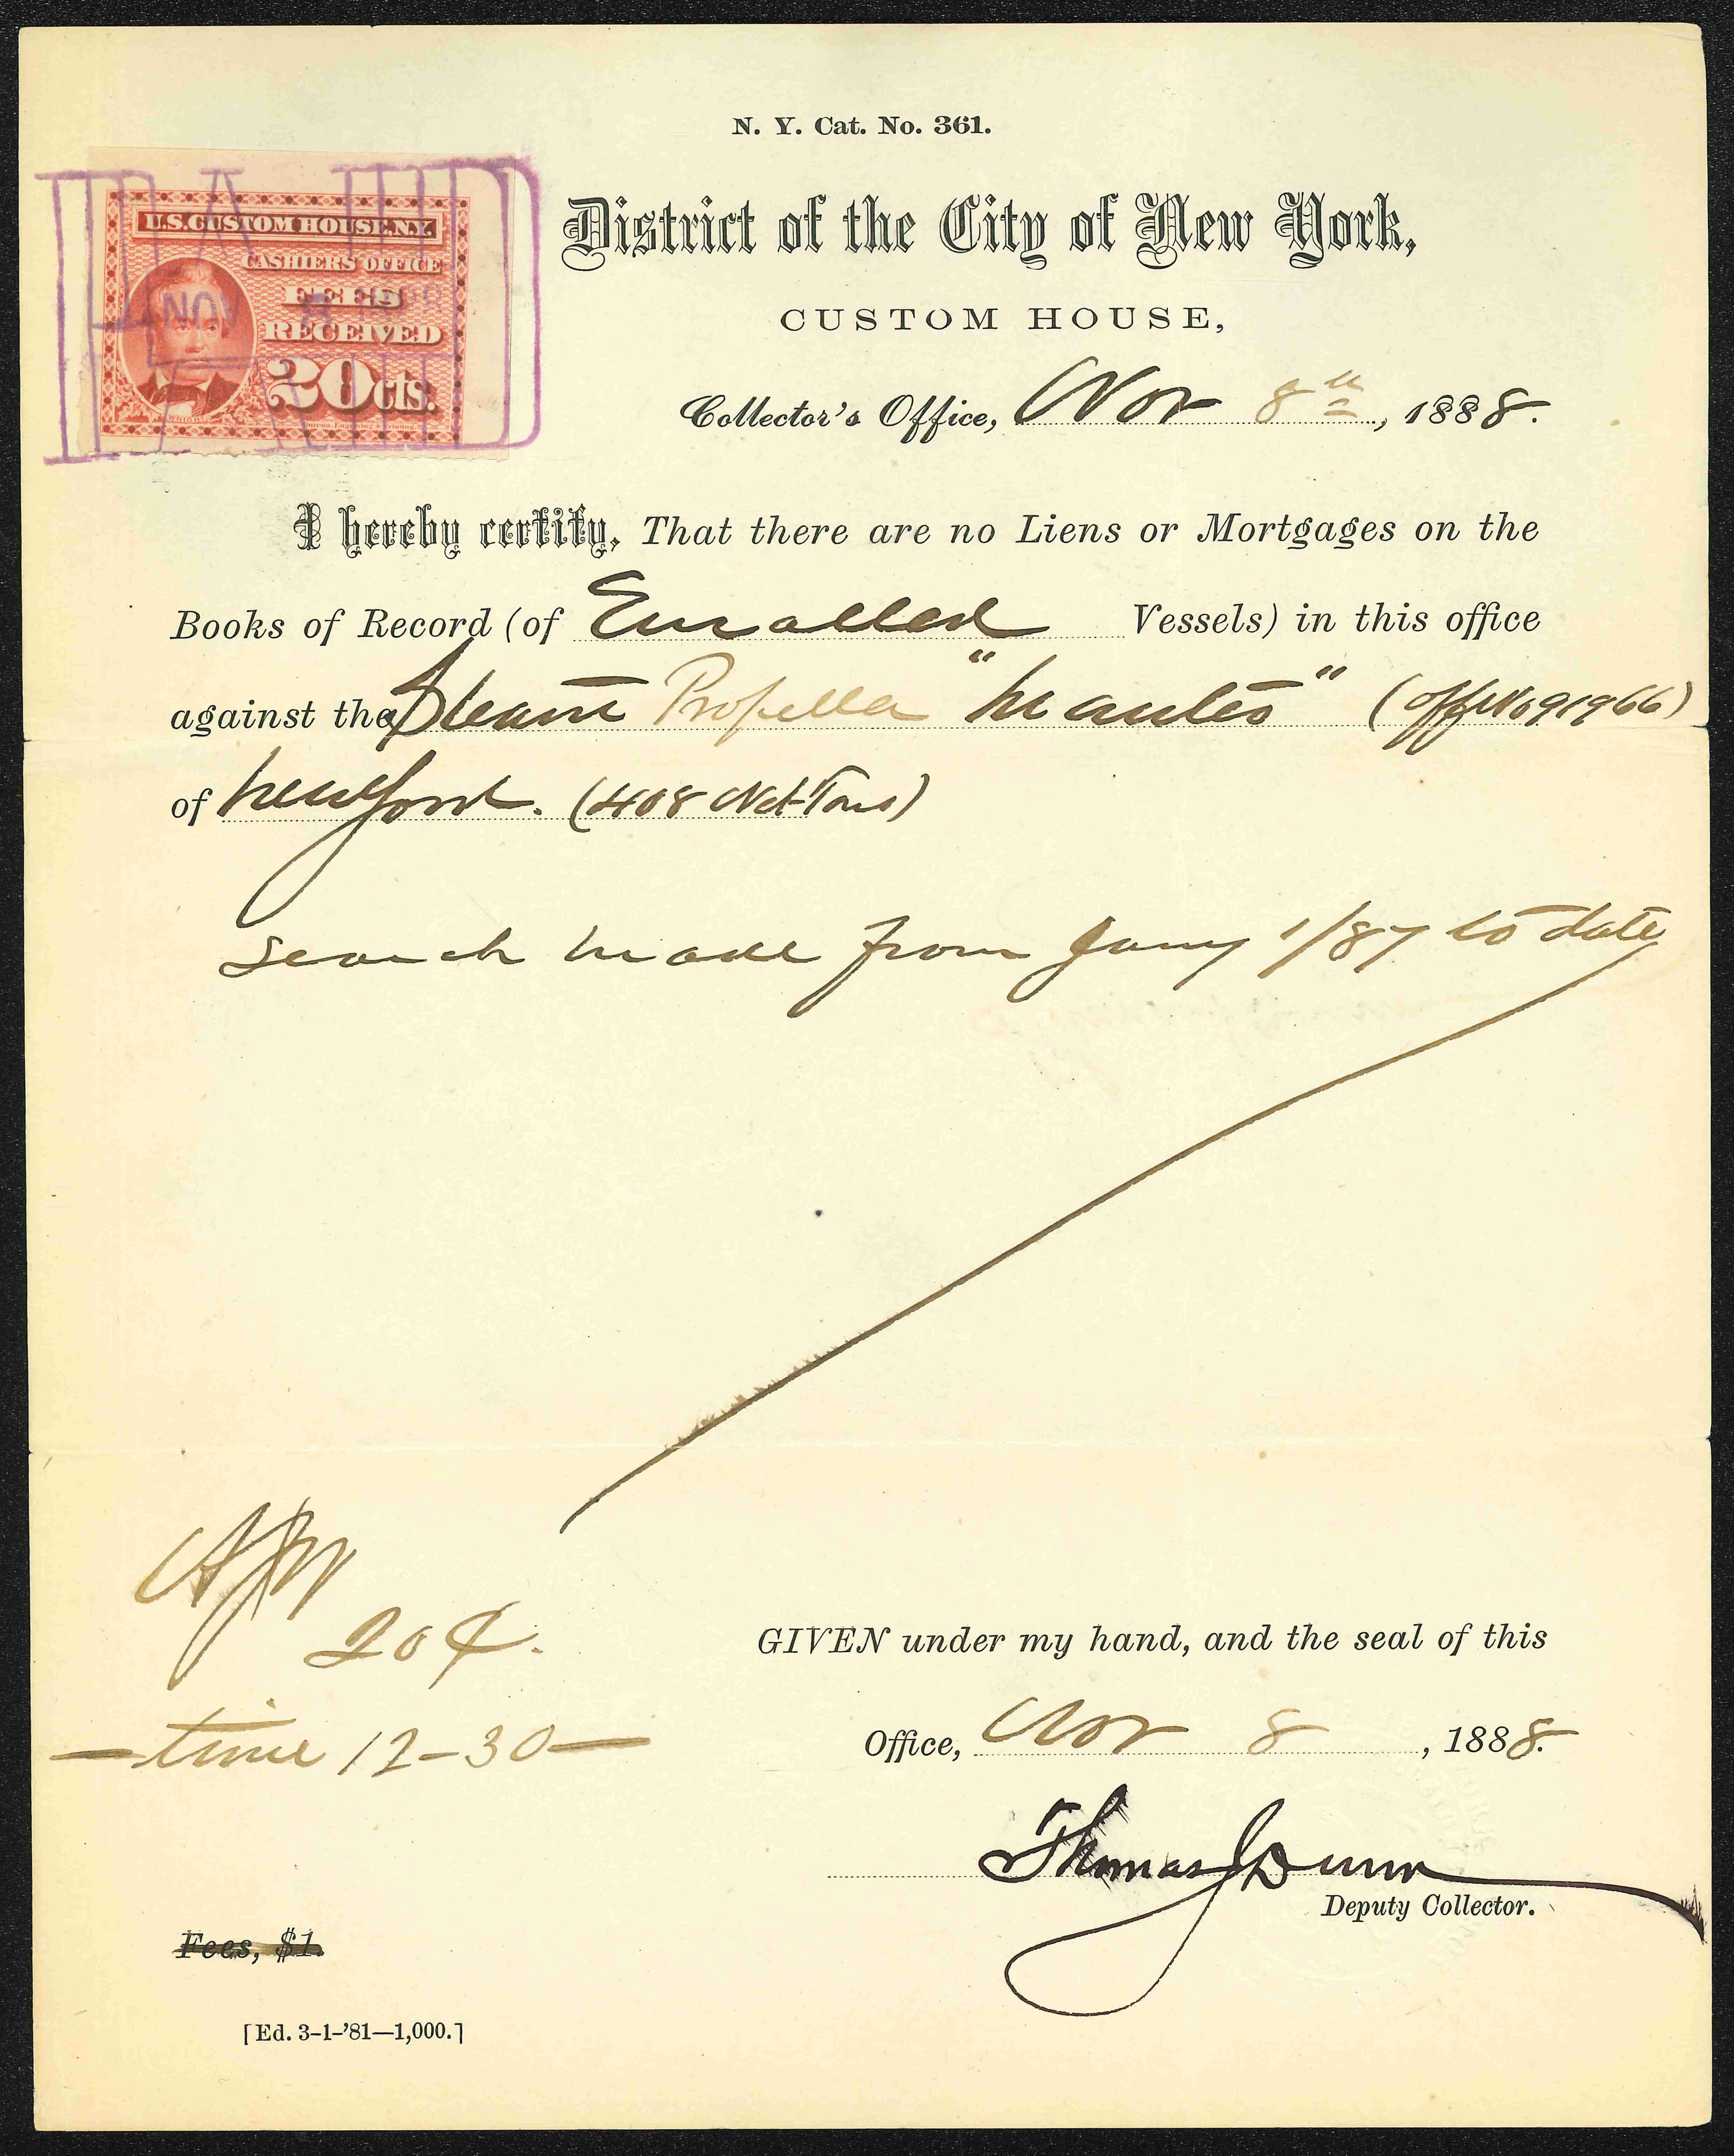 N. Y. Cat. No. 361.
PAID
U.S. CUSTOM HOUSE, N.Y.
CASHIERS OFFICE
FEES
RECEIVED
20 cts.
NOV 8
District of the City of New York,
CUSTOM HOUSE,
Collector's Office, Nov 8th, 1888.
I hereby certify, That there are no Liens or Mortgages on the
Books of Record (of Enrolled Vessels) in this office
against the Steam Propeller "Manteo" (Off No 91966)
of New York. (408 Net Tons)
Search made from Jany 1/87 to date
20¢.
time 12-30
GIVEN under my hand, and the seal of this
Office, Nov 8, 1888.
Thomas J Dunn
Deputy Collector.
Fees, $1.
[Ed. 3-1-'81—1,000.]